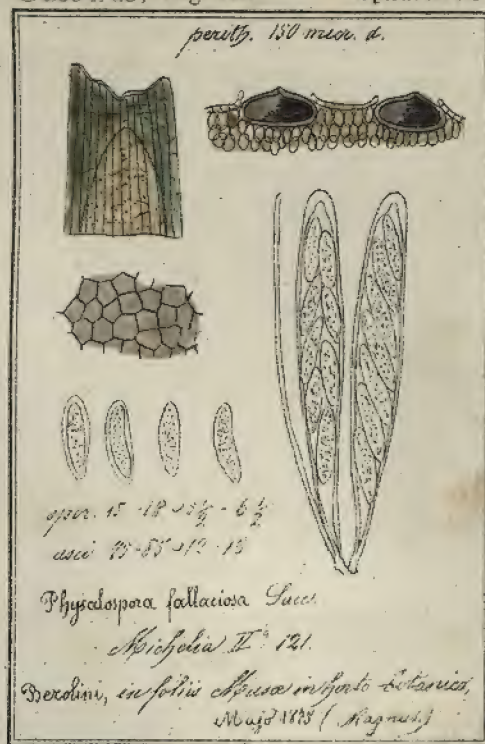 perith. 150 micr. d.
spor. 15-18 = 5½ - 6½
asci 75-85 = 12-15
Physalospora fallaciosa Sacc.
Michelia II. 121.
Berolini, in foliis Musæ in horto botanico,
Majo 1875 (Magnus.)